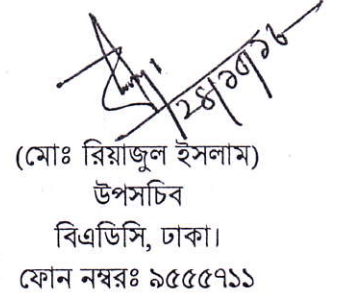 (মোঃ রিয়াজুল ইসলাম)
উপসচিব
বিএডিসি, ঢাকা।
ফোন নম্বরঃ ৯৫৫৫৭১১